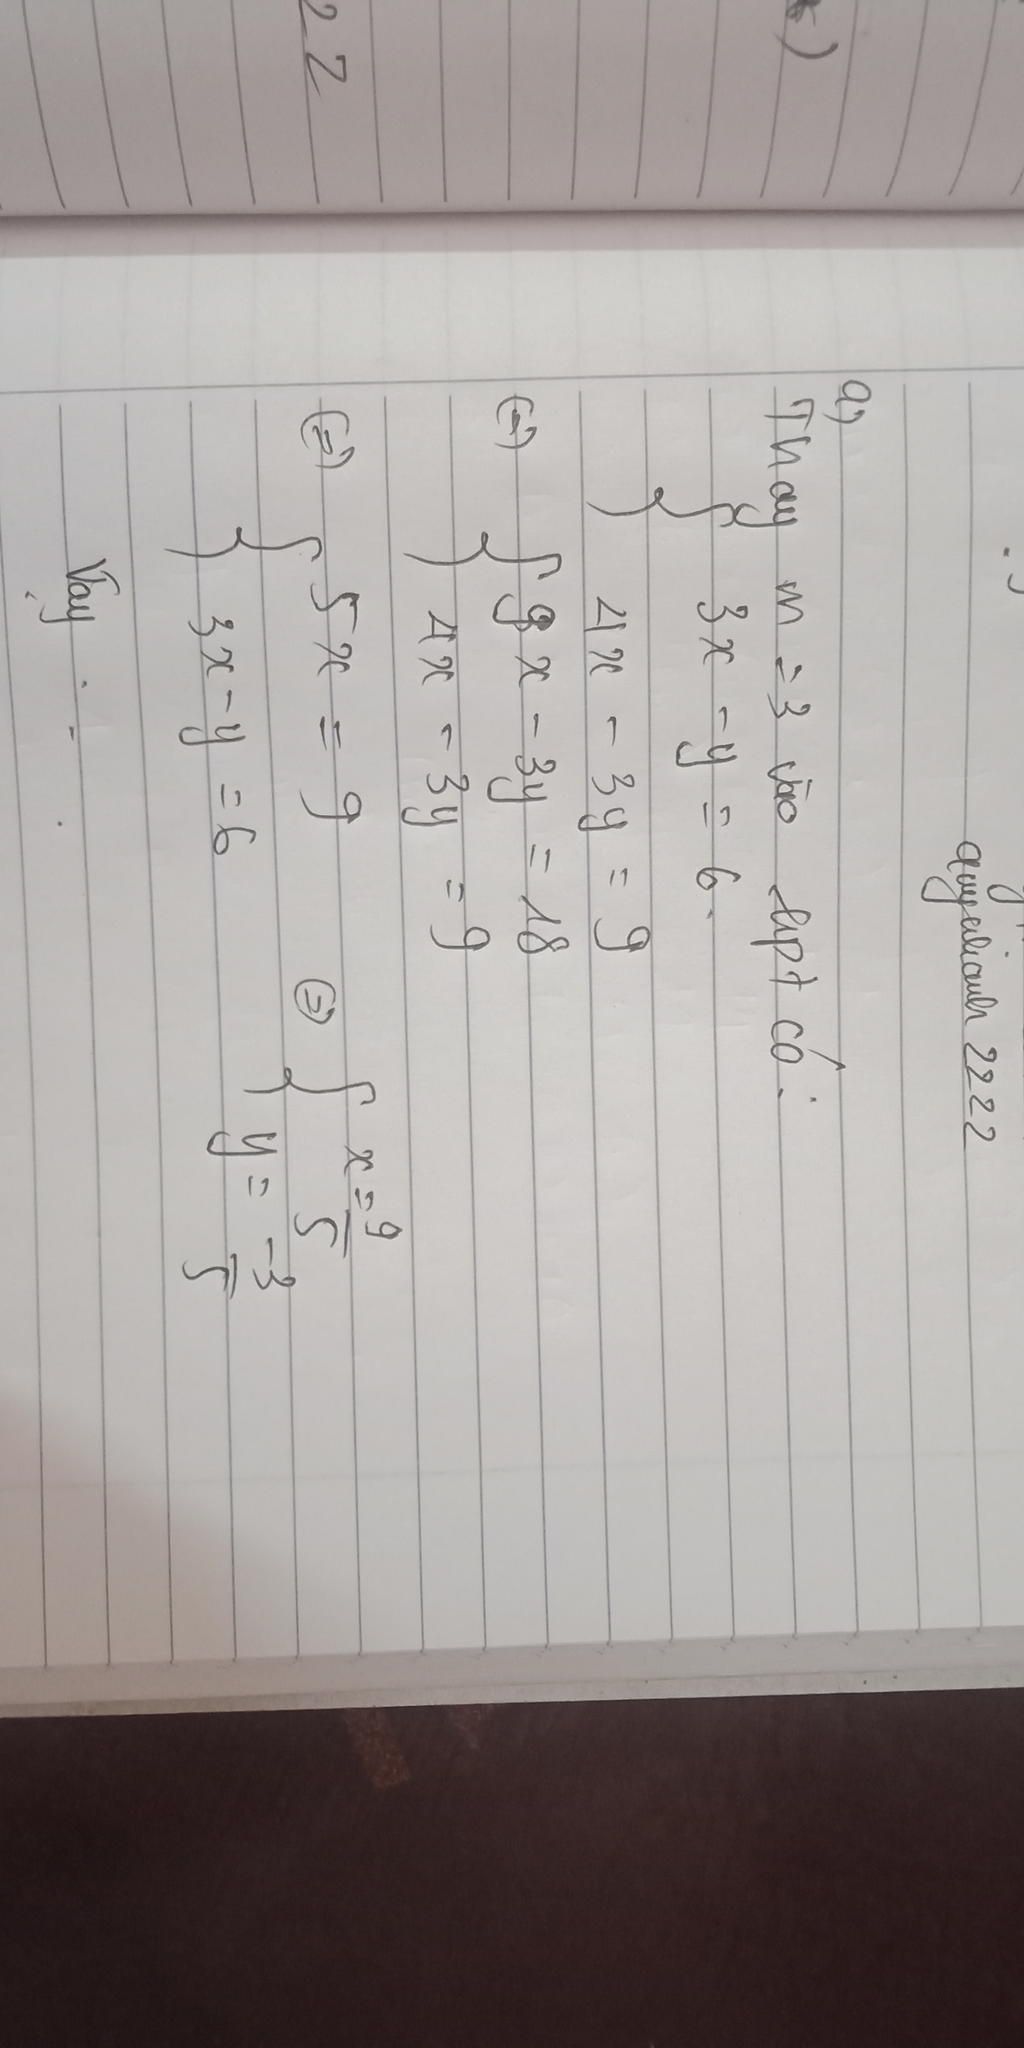 22
a) Thay m = 3 vào hpt có:
{ 3x - y = 6.
4x - 3y = 9
(=) { 9x - 3y = 18
4x - 3y = 9
(=) { 5x = 9
3x - y = 6
(=) { x = 9/5
y = -3/5
Vậy . - .